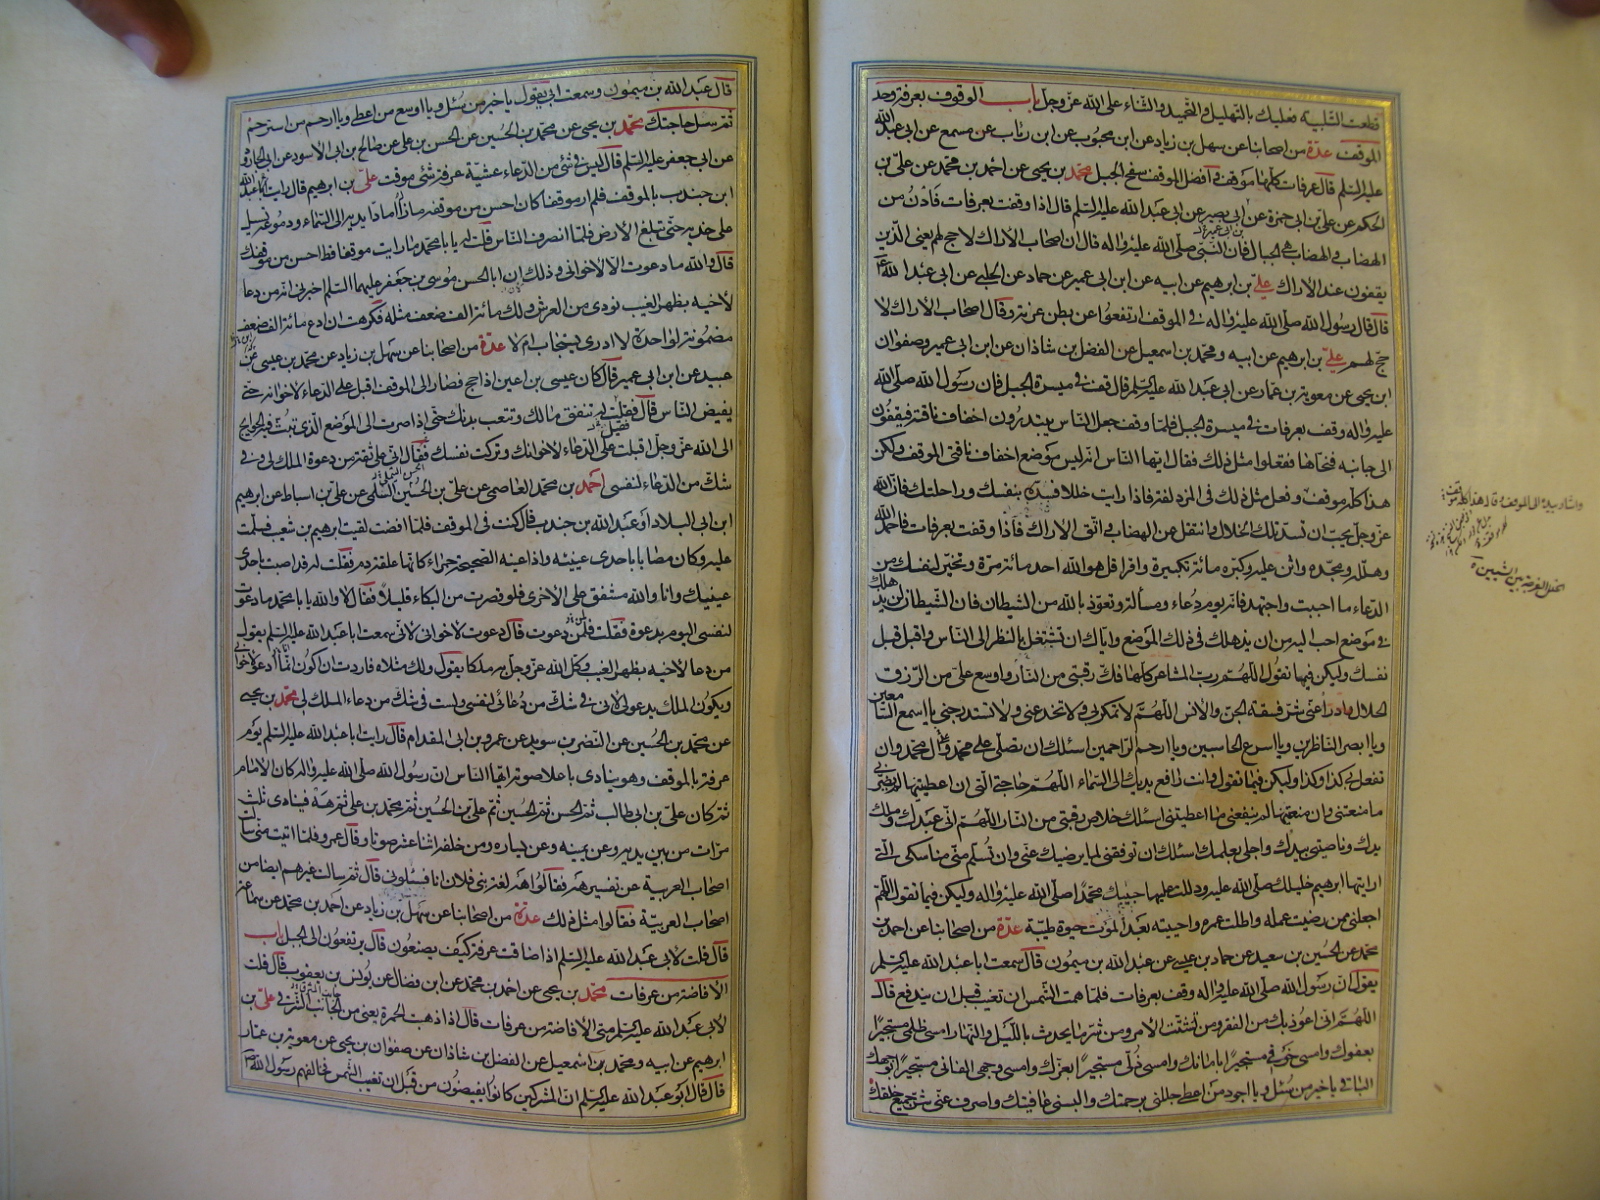 قطعت التلبية فعليك بالتهليل والتحميد والثناء على الله عز وجل باب الوقوف بعرفة وحد
الموقف عدة من اصحابنا عن سهل بن زياد عن ابن محبوب عن ابن رئاب عن مسمع عن ابى عبد الله
عليه السلم قال عرفات كلها موقف وافضل الموقف سفح الجبل محمد بن يحيى عن احمد بن محمد عن على بن
الحكم عن على بن ابى حمزة عن ابى بصير عن ابى عبد الله عليه السلم قال اذا وقفت بعرفات فادن من
الهضاب والهضاب هى الجبال فان النبى صلى الله عليه واله قال ان اصحاب الاراك لا حج لهم يعنى الذين
يقفون عند الاراك على بن ابرهيم عن ابيه عن ابن ابى عمير عن حماد عن الحلبى عن ابى عبد الله
قال قال رسول الله صلى الله عليه واله فى الموقف ارتفعوا عن بطن عرنة وقال اصحاب الاراك لا
حج لهم على بن ابرهيم عن ابيه ومحمد بن اسمعيل عن الفضل بن شاذان عن ابن ابى عمير وصفوان
ابن يحيى عن معوية بن عمار عن ابى عبد الله عليه السلم قال قف فى ميسرة الجبل فان رسول الله صلى الله
عليه واله وقف بعرفات فى ميسرة الجبل فلما وقف جعل الناس يبتدرون اخفاف ناقته فيقفون
الى جانبه فنحاها ففعلوا مثل ذلك فقال ايها الناس انه ليس موضع اخفاف ناقتى الموقف ولكن
هذا كله موقف وفعل مثل ذلك فى المزدلفة فاذا رايت خللا فسده بنفسك وراحلتك فان الله
عز وجل يحب ان تسد تلك الخلال وانتقل عن الهضاب واتق الاراك فاذا وقفت بعرفات فاحمد الله
وهلله ومجده واثن عليه وكبره مائة تكبيرة واقرا قل هو الله احد مائة مرة وتخير لنفسك من
الدعاء ما احببت واجتهد فانه يوم دعاء ومسألة وتعوذ بالله من الشيطان فان الشيطان لن يذهلك
فى موضع احب اليه من ان يذهلك فى ذلك الموضع واياك ان تشتغل بالنظر الى الناس واقبل قبل
نفسك وليكن فيما تقول اللهم رب المشاعر كلها فك رقبتى من النار واوسع على من الرزق
الحلال وادرا عنى شر فسقة الجن والانس اللهم لا تمكر بى ولا تخدعنى ولا تستدرجنى يا اسمع السامعين
ويا ابصر الناظرين ويا اسرع الحاسبين ويا ارحم الراحمين اسئلك ان تصلى على محمد وال محمد وان
تفعل بى كذا وكذا وليكن فيما تقول وانت رافع يديك الى السماء اللهم حاجتى التى ان اعطيتها لم يضرنى
ما منعتنى وان منعتنيها لم ينفعنى ما اعطيتنى اسئلك خلاص رقبتى من النار اللهم انى عبدك وملك
يدك وناصيتى بيدك واجلى بعلمك اسئلك ان توفقنى لما يرضيك عنى وان تسلم منى مناسكى التى
اريتها ابرهيم خليلك صلى الله عليه ودللت عليها حبيبك محمدا صلى الله عليه واله وليكن فيما تقول اللهم
اجعلنى ممن رضيت عمله واطلت عمره واحييته بعد الموت حيوة طيبة عدة من اصحابنا عن احمد بن
محمد عن الحسين بن سعيد عن حماد بن عيسى عن عبد الله بن ميمون قال سمعت ابا عبد الله عليه السلم
يقول ان رسول الله صلى الله عليه واله وقف بعرفات فلما همت الشمس ان تغيب قبل ان يندفع قال
اللهم انى اعوذ بك من الفقر ومن تشتت الامر ومن شر ما يحدث بالليل والنهار امسى ظلمى مستجيرا
بعفوك وامسى خوفى مستجيرا بامانك وامسى ذلى مستجيرا بعزك وامسى وجهى الفانى مستجيرا بوجهك
الباقى يا خير من سئل ويا اجود من اعطى جللنى برحمتك والبسنى عافيتك واصرف عنى شر جميع خلقك
قال عبد الله بن ميمون وسمعت ابى يقول يا خير من سئل ويا اوسع من اعطى ويا ارحم من استرحم
ثم سل حاجتك محمد بن يحيى عن محمد بن الحسين عن الحسن بن على عن صالح بن ابى الاسود عن ابى الجارود
عن ابى جعفر عليه السلم قال ليس فى شئ من الدعاء عشية عرفة شئ موقت على بن ابرهيم قال رايت عبد الله
ابن جندب بالموقف فلم ار موقفا كان احسن من موقفه ما زال مادا يديه الى السماء ودموعه تسيل
على خديه حتى تبلغ الارض فلما انصرف الناس قلت له يا ابا محمد ما رايت موقفا قط احسن من موقفك
قال والله ما دعوت الا لاخوانى وذلك ان ابا الحسن موسى بن جعفر عليهما السلم اخبرنى انه من دعا
لاخيه بظهر الغيب نودى من العرش ولك مائة الف ضعف مثله فكرهت ان ادع مائة الف ضعف
مضمونة لواحدة لا ادرى يستجاب ام لا عدة من اصحابنا عن سهل بن زياد عن محمد بن عيسى بن
عبيد عن ابن ابى عمير قال كان عيسى بن اعين اذا حج فصار الى الموقف اقبل على الدعاء لاخوانه حتى
يفيض الناس قال فقلت له تنفق مالك وتتعب بدنك حتى اذا صرت الى الموضع الذى تبث فيه الحوايج
الى الله عز وجل اقبلت على الدعاء لاخوانك وتركت نفسك فقال انى على ثقة من دعوة الملك لى وفى
شك من الدعاء لنفسى احمد بن محمد العاصمى عن على بن الحسين السلمى عن على بن اسباط عن ابرهيم
ابن ابى البلاد او عبد الله بن جندب قال كنت فى الموقف فلما افضت لقيت ابرهيم بن شعيب فسلمت
عليه وكان مصابا باحدى عينيه واذا عينه الصحيحة حمراء كانها علقة دم فقلت له قد اصبت باحدى
عينيك وانا والله مشفق على الاخرى فلو قصرت من البكاء قليلا فقال لا والله يا با محمد ما دعوت
لنفسى اليوم بدعوة فقلت فلمن دعوت قال دعوت لاخوانى لانى سمعت ابا عبد الله عليه السلم يقول
من دعا لاخيه بظهر الغيب وكل الله عز وجل به ملكا يقول ولك مثلاه فاردت ان اكون انما ادعو لاخوانى
ويكون الملك يدعو لى لانى فى شك من دعائى لنفسى ولست فى شك من دعاء الملك لى محمد بن يحيى
عن محمد بن الحسين عن النضر بن سويد عن عمرو بن ابى المقدام قال رايت ابا عبد الله عليه السلم يوم
عرفة بالموقف وهو ينادى باعلا صوته ايها الناس ان رسول الله صلى الله عليه واله كان الامام
ثم كان على بن ابى طالب ثم الحسن ثم الحسين ثم على بن الحسين ثم محمد بن على ثم هه فينادى ثلث
مرات من بين يديه وعن يمينه وعن يساره ومن خلفه اثنا عشر صوتا وقال عمرو فلما اتيت منى سالت
اصحاب العربية عن تفسير هه فقالوا هه لغة بنى فلان انا فسئلونى قال ثم سالت غيرهم ايضا من
اصحاب العربية فقالوا مثل ذلك عدة من اصحابنا عن سهل بن زياد عن احمد بن محمد عن سماعة
قال قلت لابى عبد الله عليه السلم اذا ضاقت عرفة كيف يصنعون قال يرتفعون الى الجبل باب
الافاضة من عرفات محمد بن يحيى عن احمد بن محمد عن ابن فضال عن يونس بن يعقوب قال قلت
لابى عبد الله عليه السلم متى الافاضة من عرفات قال اذا ذهبت الحمرة يعنى من الجانب الشرقى على بن
ابرهيم عن ابيه ومحمد بن اسمعيل عن الفضل بن شاذان عن صفوان بن يحيى عن معوية بن عمار
قال قال ابو عبد الله عليه السلم ان المشركين كانوا يفيضون من قبل ان تغيب الشمس فخالفهم رسول الله
واشار بيده الى الموقف وقال هذا كله موقف